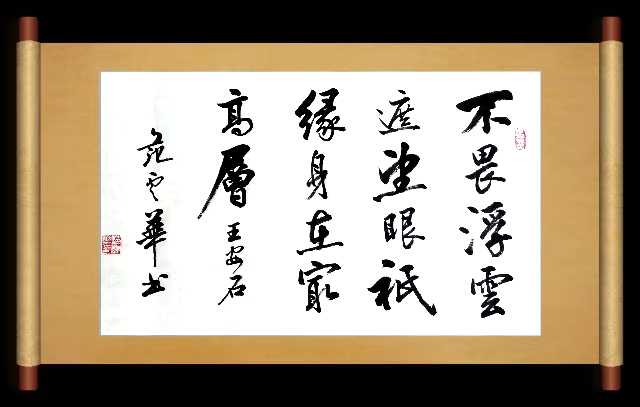 不畏浮雲
遮望眼祇
緣身在最
高層 王安石
范云華书